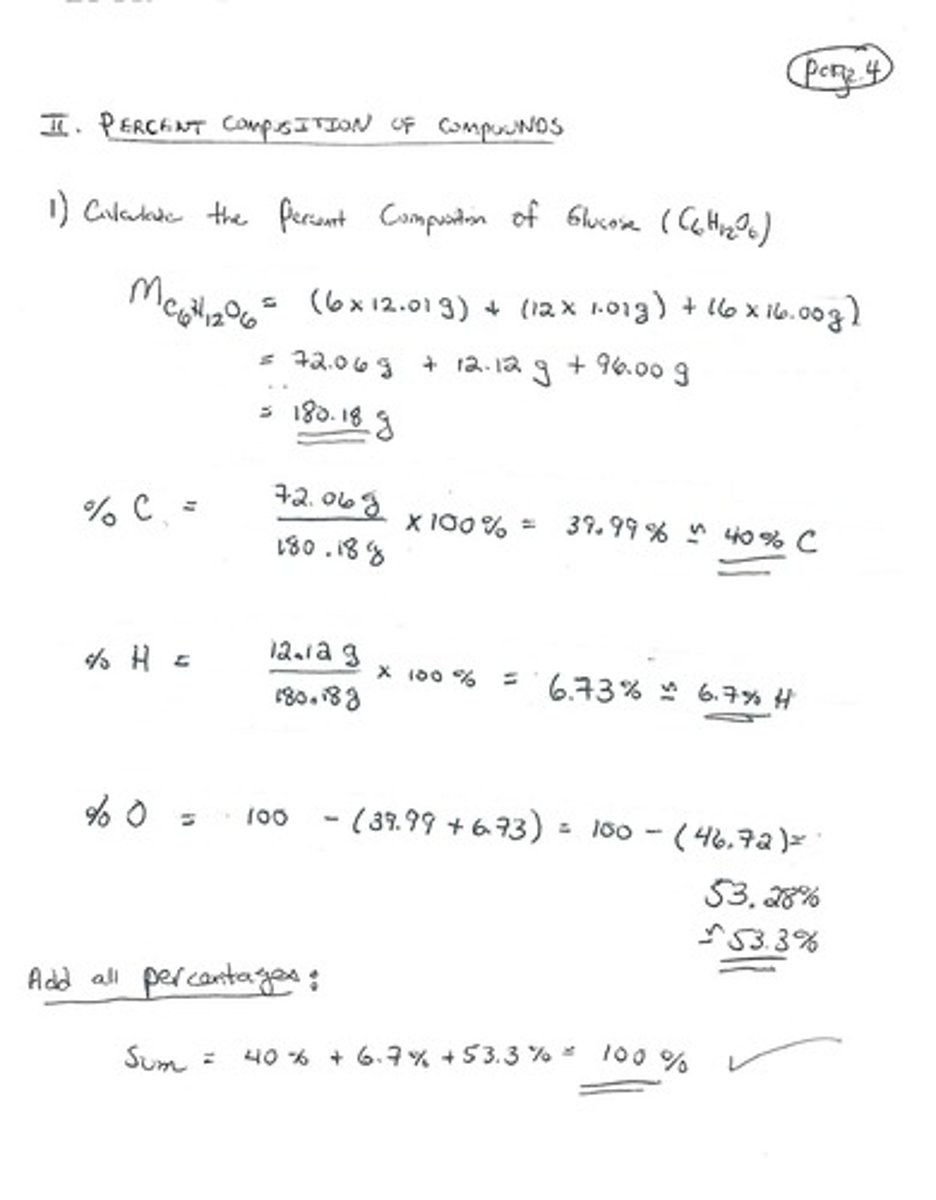 pag. 4
II. PERCENT COMPOSITION OF COMPOUNDS
1) Calculate the Percent Composition of Glucose (C₆H₁₂O₆)
M C₆H₁₂O₆ = (6 x 12.01g) + (12 x 1.01g) + (6 x 16.00g)
= 72.06 g + 12.12 g + 96.00 g
= 180.18 g
% C = 72.06g / 180.18g x 100% = 39.99% ≃ 40% C
% H = 12.12 g / 180.18g x 100% = 6.73% ≃ 6.7% H
% O = 100 - (39.99 + 6.73) = 100 - (46.72) =
53.28%
≃ 53.3%
Add all percentages:
Sum = 40% + 6.7% + 53.3% = 100% ✓